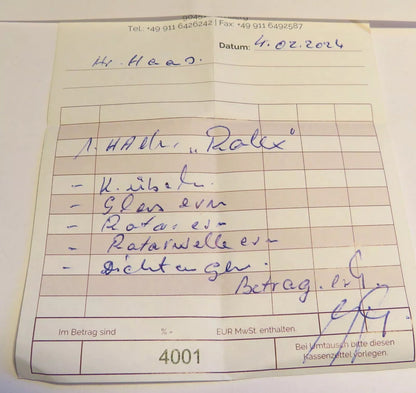 Tel.: +49 911 6426242 | Fax +49 911 6492587
Datum: 4.02.2024
Hr. Haas.
1. HAU. „Rolex"
- K. überh.
- Glas ern
- Rotor ern
- Rotorwelle ern
- Dichtungen.
Betrag. erh.
Im Betrag sind %- EUR MwSt enthalten.
4001
Bei Umtausch bitte diesen
Kassenzettel vorlegen.